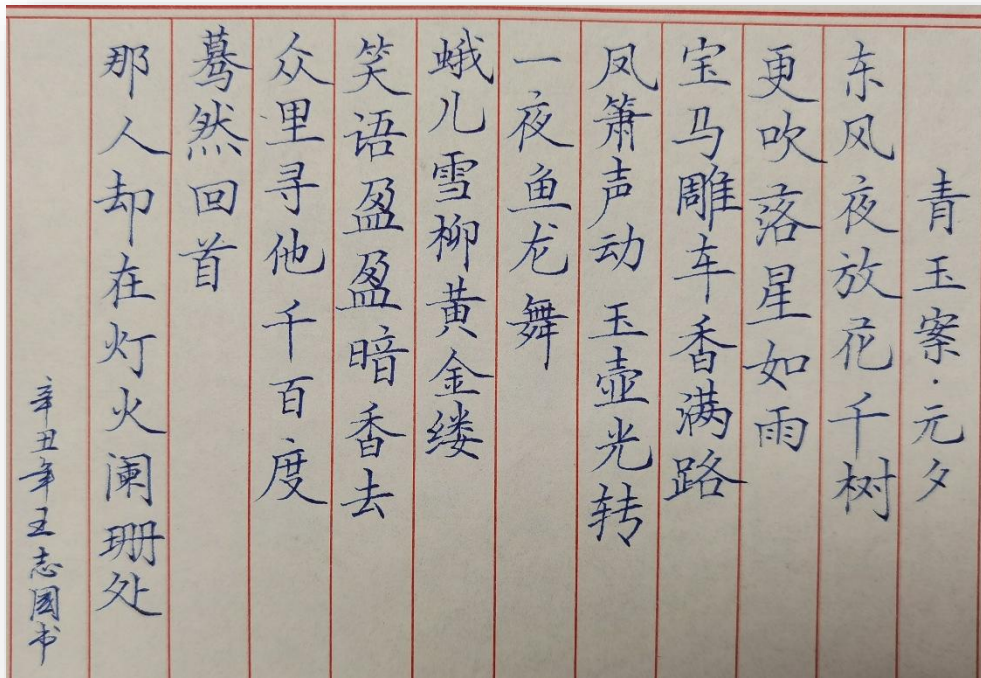 青玉案·元夕
东风夜放花千树
更吹落星如雨
宝马雕车香满路
凤箫声动玉壶光转
一夜鱼龙舞
蛾儿雪柳黄金缕
笑语盈盈暗香去
众里寻他千百度
蓦然回首
那人却在灯火阑珊处
辛丑年王志国书